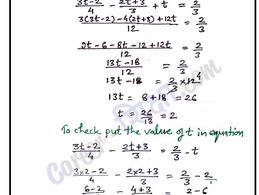 3t-2/4 - 2t+3/3 + t = 2/3
3(3t-2)-4(2t+3)+12t/12 = 2/3
9t-6-8t-12+12t/12 = 2/3
13t-18/12 = 2/3
13t-18 = 2/3 × 12 4
13t = 8+18 = 26
t = 26/13 = 2
To check put the value of t in equation
3t-2/4 - 2t+3/3 = 2/3 - t
3×2-2/4 - 2×2+3/3 = 2/3 - 2
6-2 - 4+3 = 2-6